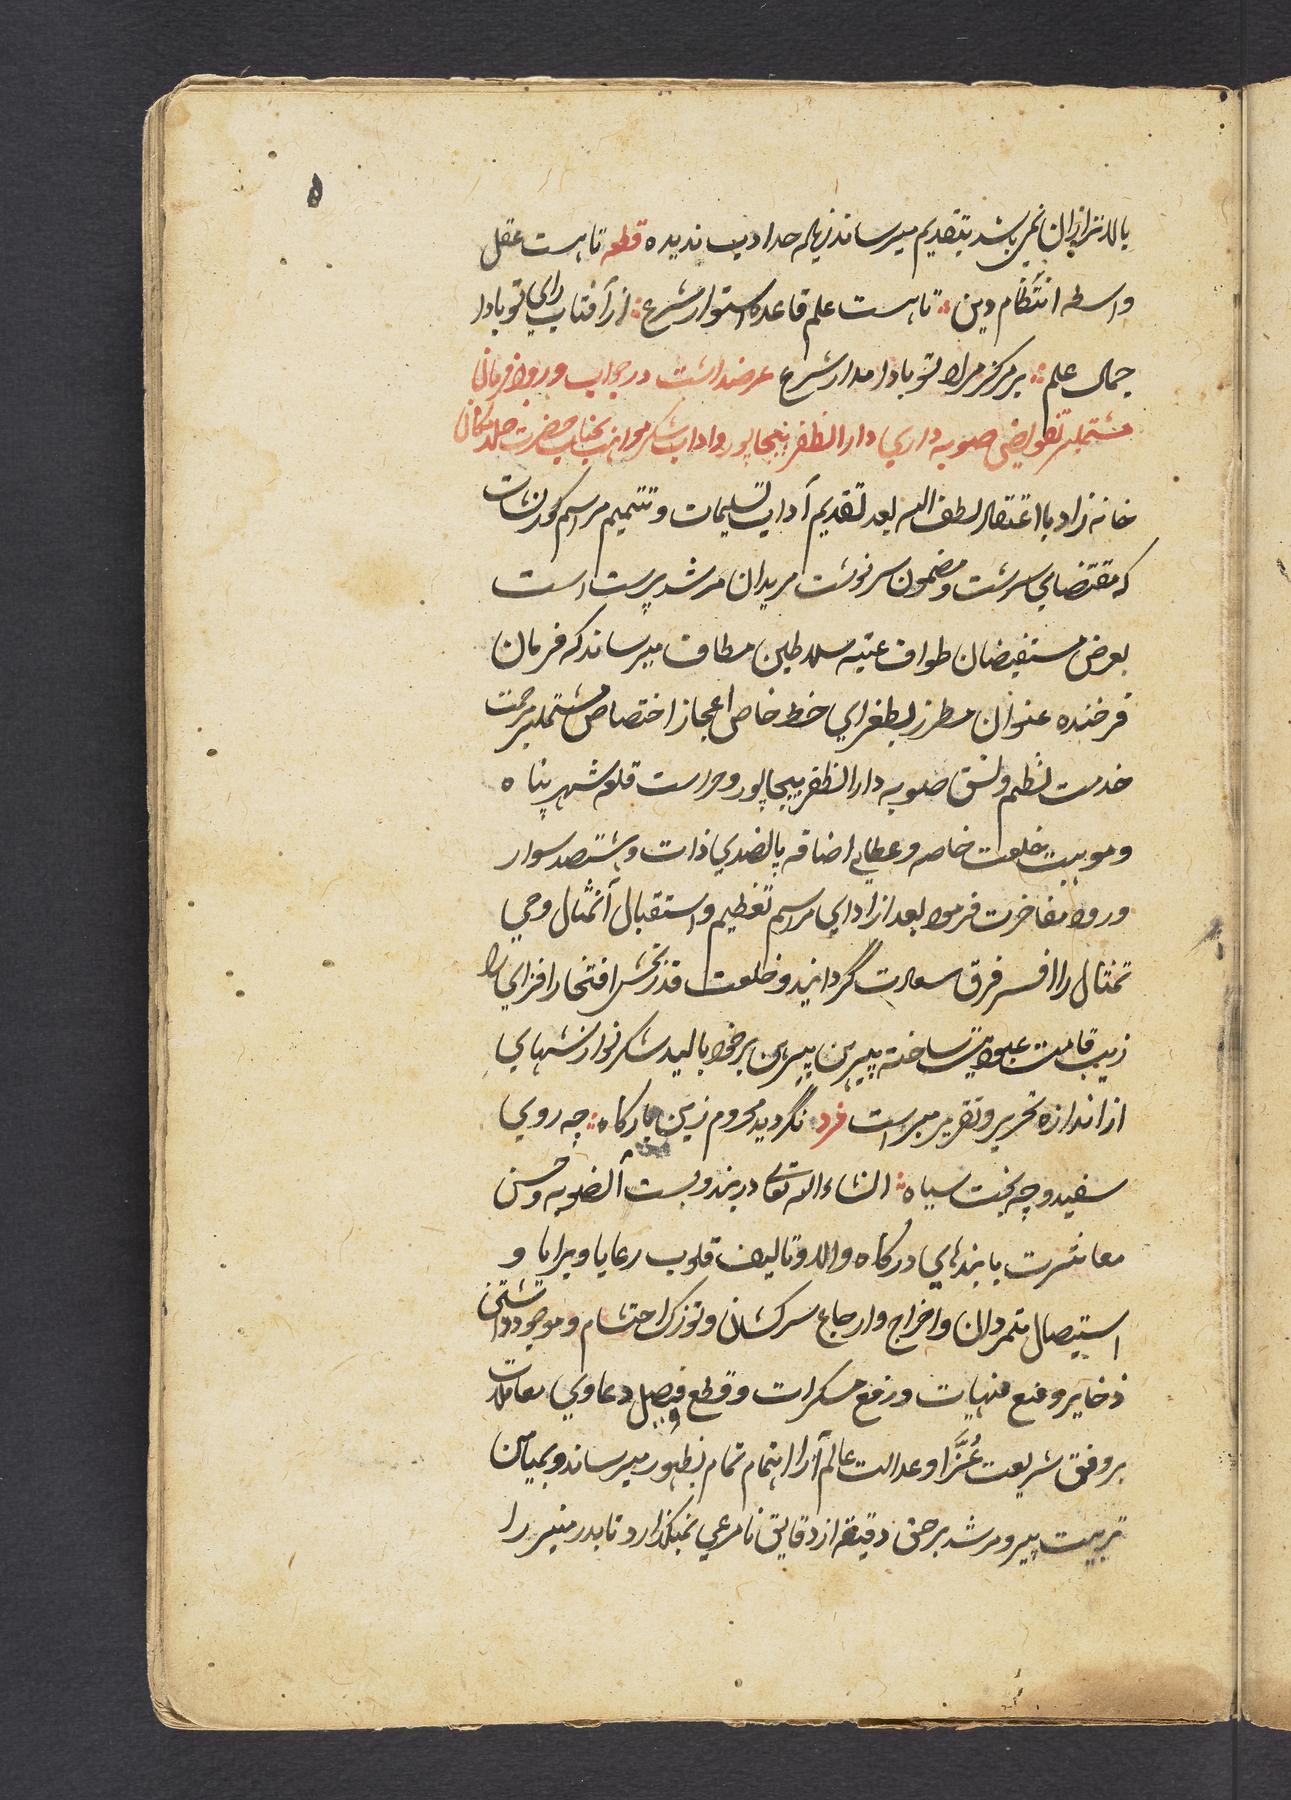 ۵
بالاتر ازان نمی باشد بتقدیم میرساند زیاده حد ادب ندیده قطعه تا هست عقل
واسطه انتظام دین؛ تا هست علم قاعده استوار شرع؛ از آفتاب رای تو بادا
جمال علم؛ بر مرکز مراد تو بادا مدار شرع عرضداشت در جواب ورود فرمان
مشتملبر تفویض صوبه داری دار الظفر بیجاپور و اداب شکر مواهب بجناب حضرت خلد مکان
خانه زاد با اعتقاد لطف الله بعد تقدیم آداب تسلیمات و تتمیم مراسم کورنشات
که مقتضای سرشت و مضمون سرنوشت مریدان مرشد پرست است
بعرض مستفیضان طواف عتبه سلاطین مطاف میرساند که فرمان
فرخنده عنوان مطرز بطغرای خط خاص اعجاز اختصاص مشتملبر مرحمت
خدمت نظم و نسق صوبه دار الظفر بیجاپور و حراست قلعه شهر پناه
و موهبت خلعت خاصه و عطای اضافه پانصدی ذات و ششصد سوار
ورود مفاخرت فرمود بعد از ادای مراسم تعظیم و استقبال آنمثال وحی
تمثال را افسر فرق سعادت گردانید و خلعت قدر بخش افتخار افزای را
زیب قامت عبودیت ساخته پیرهن پیرهن بر خود بالید شکر نوازشهای
از اندازه تحریر و تقریر مبراست فرد نگردید محروم زین بارکاه؛ چه روی
سفید و چه بخت سیاه؛ انشاء الله تعالی در بند و بست آنصوبه و حسن
معاشرت با بندهای درکاه والا و تالیف قلوب رعایا و برایا و
استیصال متمردان و اخراج و ارجاع سرکشان و توزک احتشام و موجود داشتن
ذخایر و منع منهیات و رفع مسکرات و قطع و فیصل دعاوی معاملات
بر وفق شریعت غرّا و عدالت عالم آرا اهتمام تمام بظهور میرساند و بمیامن
تربیت پیر و مرشد برحق دقیقه از دقایق نامرعی نمیکذارد تا بدر منیر را